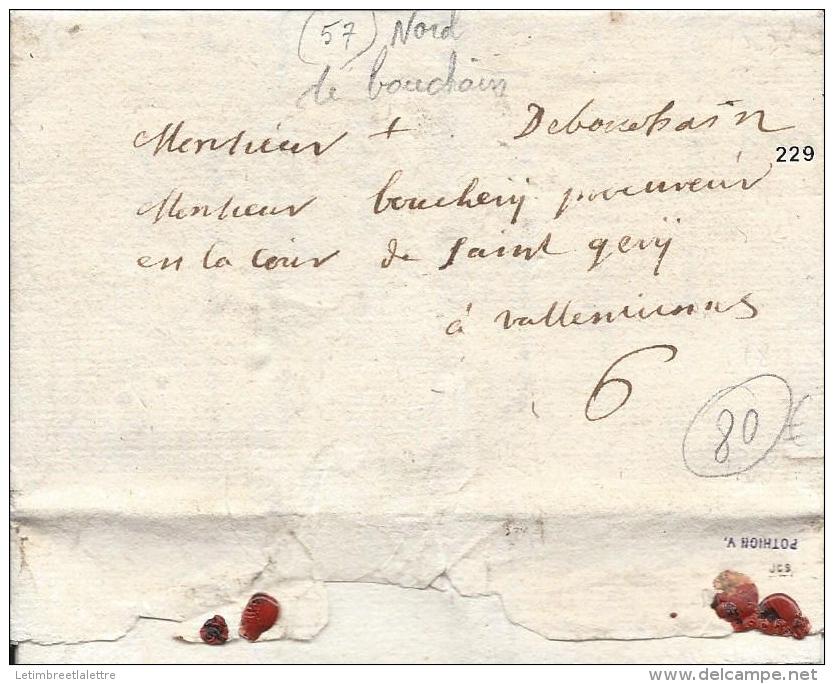 (57) Nord
de bouchain
Monsieur + Debouchain
229
Monsieur bouchery procureur
en la cour de saint gery
à vallenciennes
6
80 €
POTHION V.
JCS
Letimbreetlalettre
delcampe.net